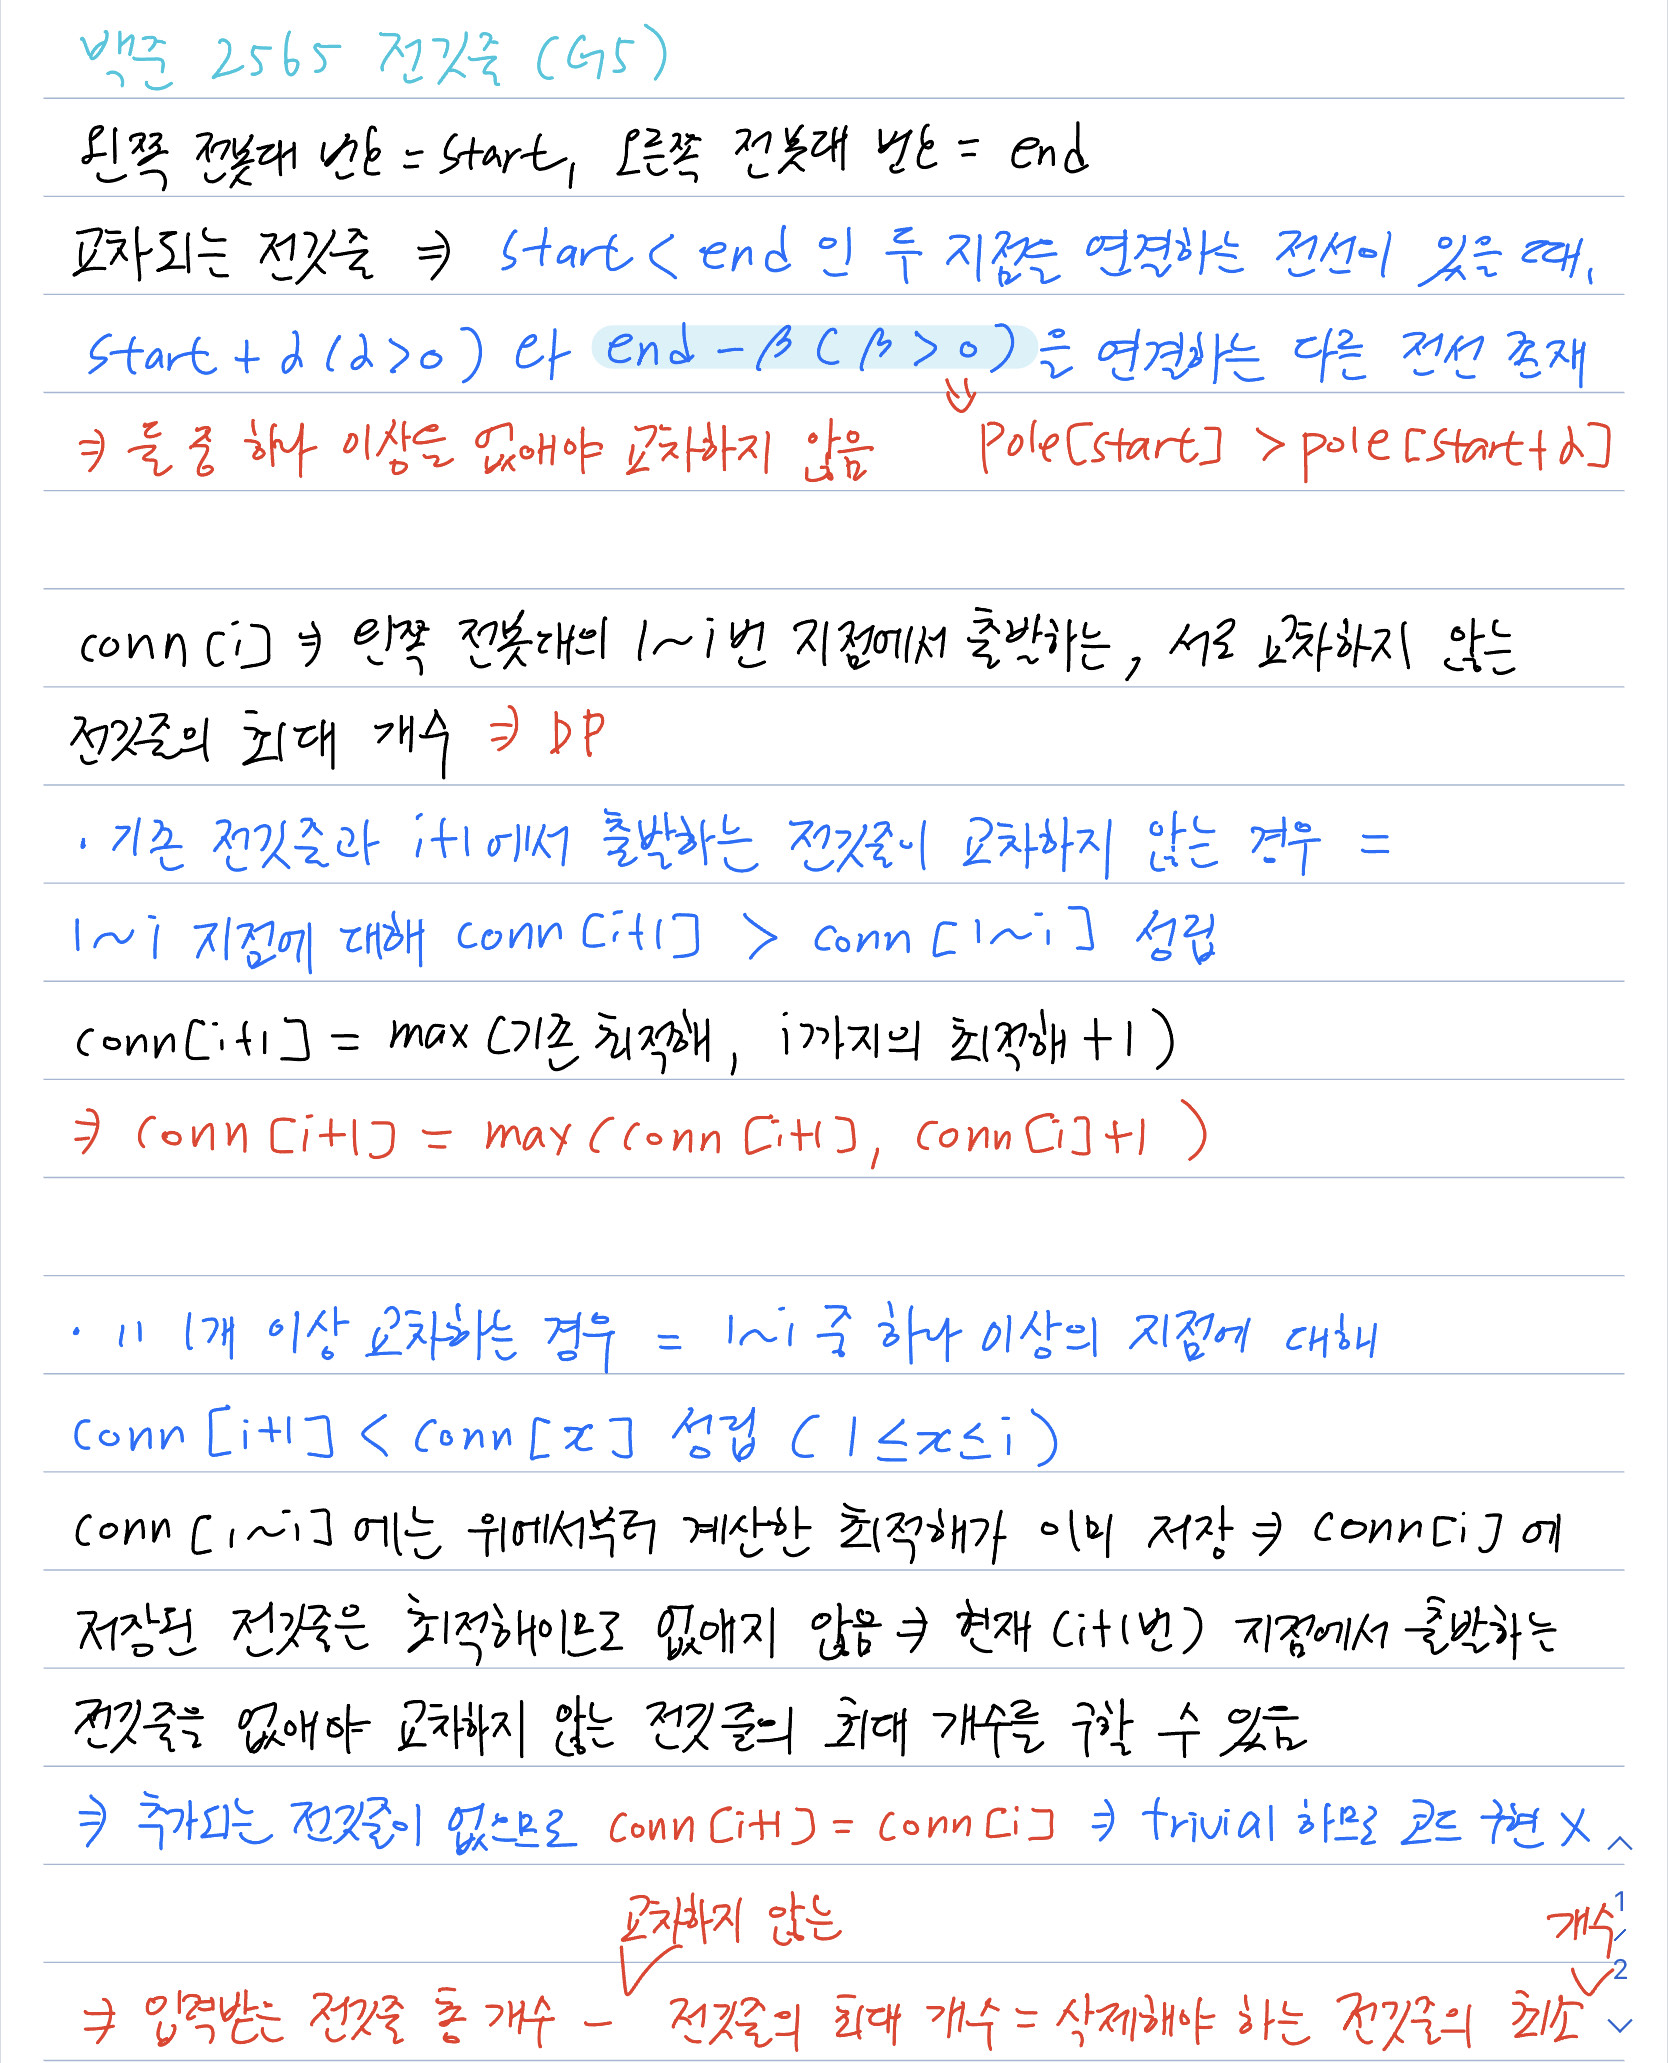 백준 2565 전깃줄 (G5)
왼쪽 전봇대 번호 = start, 오른쪽 전봇대 번호 = end
교차되는 전깃줄 ⇒ start < end 인 두 지점을 연결하는 전선이 있을 때,
start + α (α>0) 와 end - β (β>0)을 연결하는 다른 전선 존재
⇒ 둘 중 하나 이상을 없애야 교차하지 않음 ⇓ pole[start] > pole[start+α]
conn[i] ⇒ 왼쪽 전봇대의 1~i번 지점에서 출발하는, 서로 교차하지 않는
전깃줄의 최대 개수 ⇒ DP
· 기존 전깃줄과 i+1에서 출발하는 전깃줄이 교차하지 않는 경우 =
1~i 지점에 대해 conn[i+1] > conn[1~i] 성립
conn[i+1] = max(기존 최적해, i까지의 최적해+1)
⇒ conn[i+1] = max(conn[i+1], conn[i]+1)
· 〃 1개 이상 교차하는 경우 = 1~i 중 하나 이상의 지점에 대해
conn[i+1] < conn[x] 성립 (1≤x≤i)
conn[1~i]에는 위에서부터 계산한 최적해가 이미 저장 ⇒ conn[i]에
저장된 전깃줄은 최적해이므로 없애지 않음 ⇒ 현재 (i+1번) 지점에서 출발하는
전깃줄을 없애야 교차하지 않는 전깃줄의 최대 개수를 구할 수 있음
⇒ 추가되는 전깃줄이 없으므로 conn[i+1] = conn[i] ⇒ trivial 하므로 코드 구현 X
교차하지 않는 개수
⇒ 입력받는 전깃줄 총 개수 - 전깃줄의 최대 개수 = 삭제해야 하는 전깃줄의 최소
1
/
2